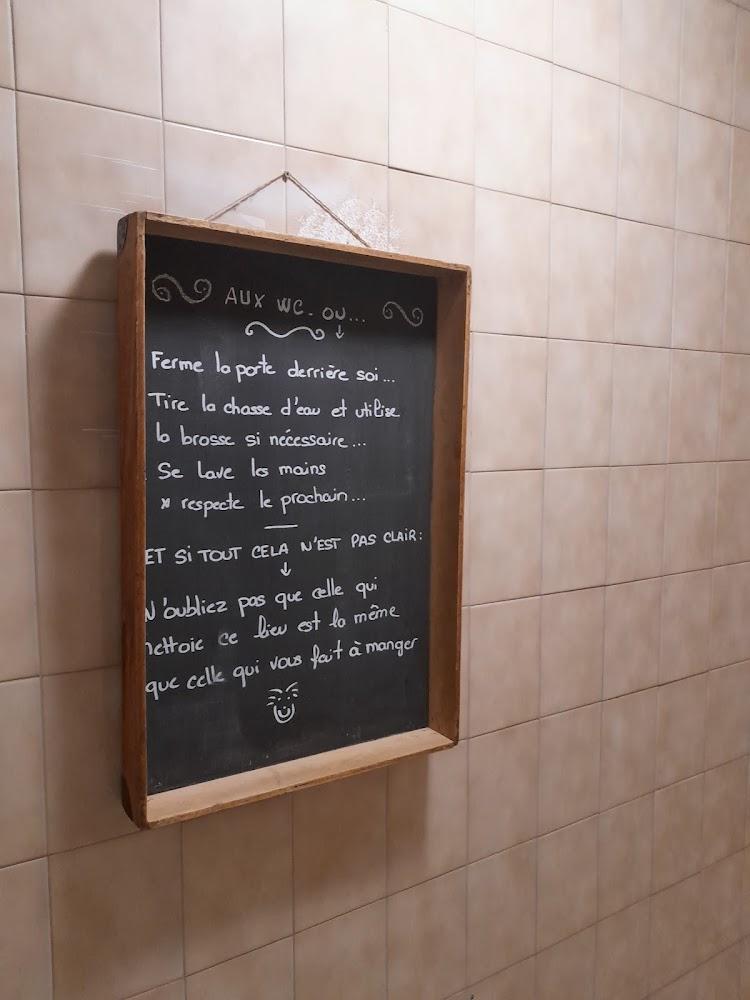 AUX WC. OU...
Ferme la porte derrière soi...
Tire la chasse d'eau et utilise
la brosse si nécessaire...
Se lave les mains
* respecte le prochain...
ET SI TOUT CELA N'EST PAS CLAIR:
N'oubliez pas que celle qui
nettoie ce lieu est la même
que celle qui vous fait à manger